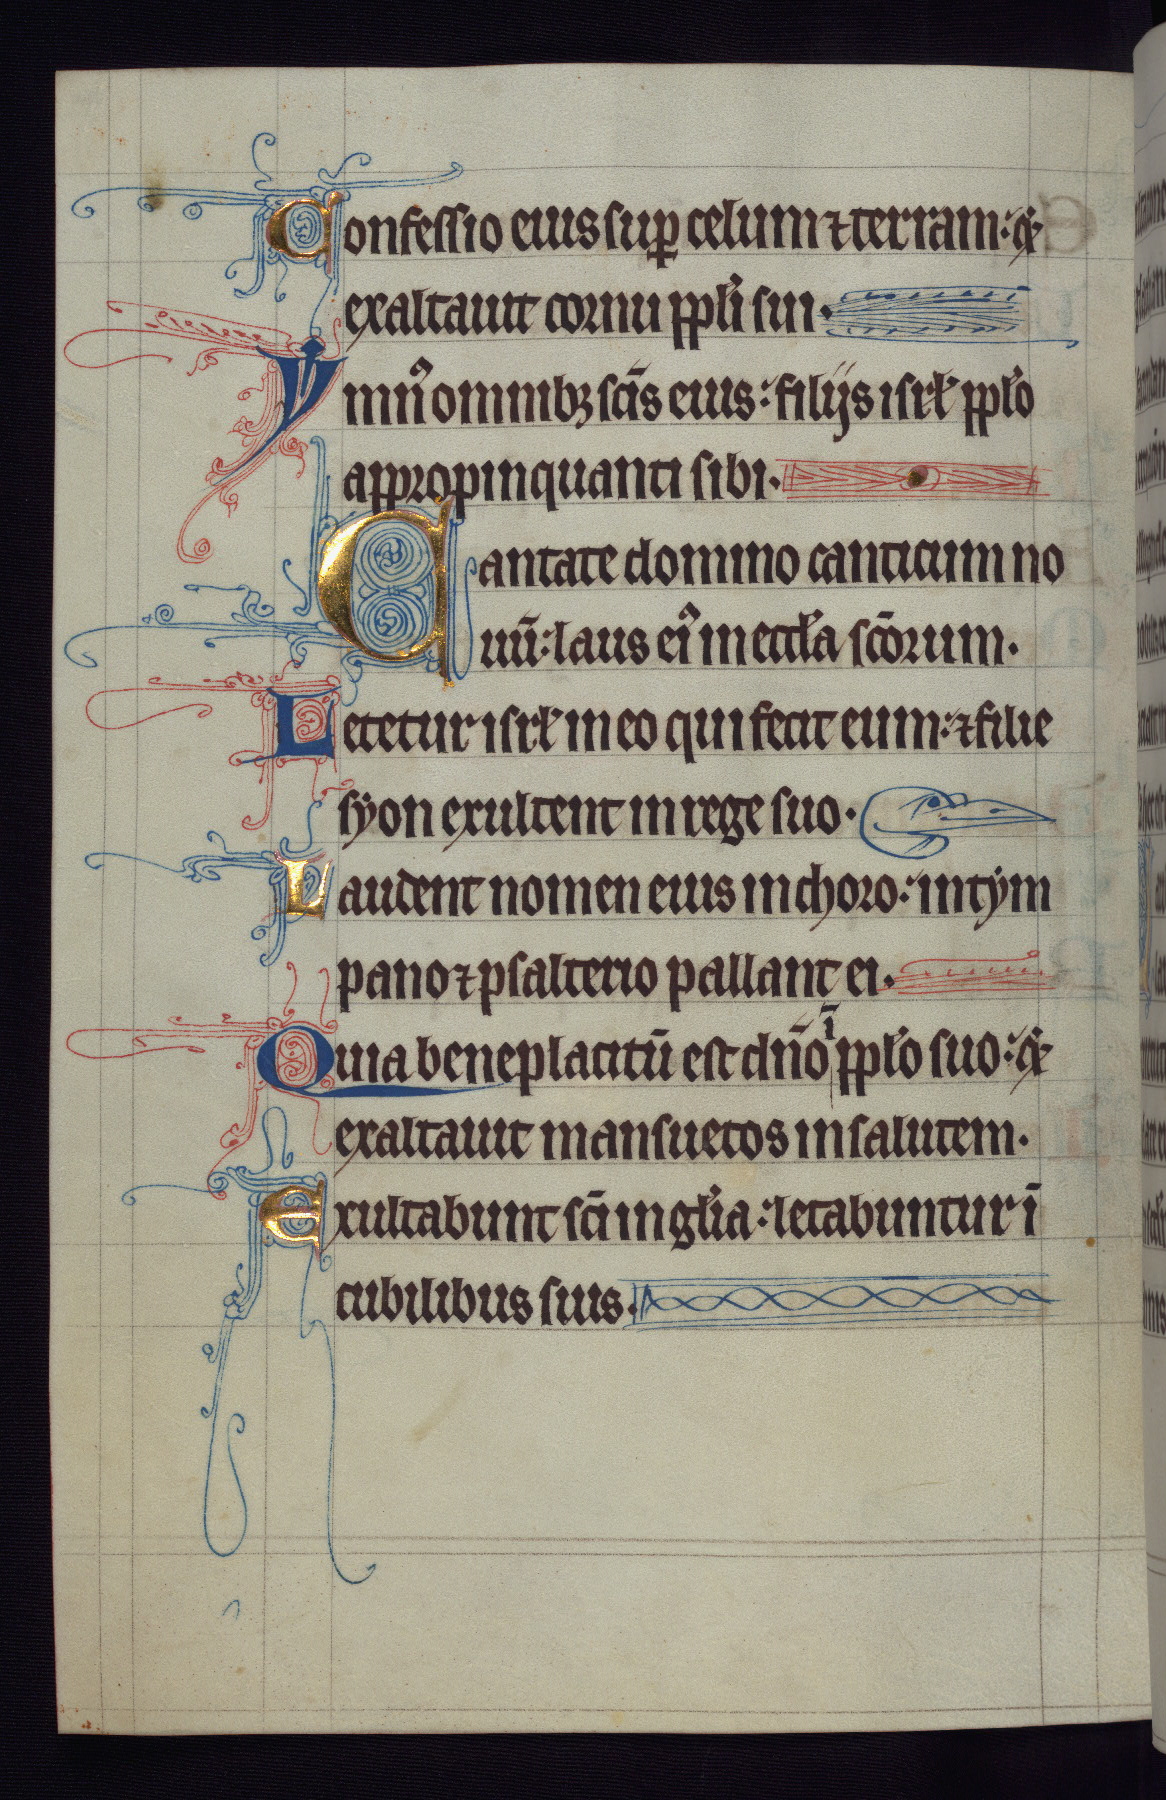 Confessio eius suꝑ celum ⁊ terram: ⁊
exaltauit cornu ppl̓i sui.
Ymnꝰ omnibꝫ sc̄is eius: filijs isrl̓ ppl̓o
appropinquanti sibi.
Cantate domino canticum no
uū: laus eiꝰ in eccl̓a sc̄orum.
Letetur isrl̓ in eo qui fecit eum: ⁊ filie
syon exultent in rege suo.
Laudent nomen eius in choro: in tym
pano ⁊ psalterio psallant ei.
Quia beneplacitū est dn̄o ī ppl̓o suo: ⁊
exaltauit mansuetos in salutem.
Exultabunt sc̄i in gl̓ia: letabuntur ī
cubilibus suis.